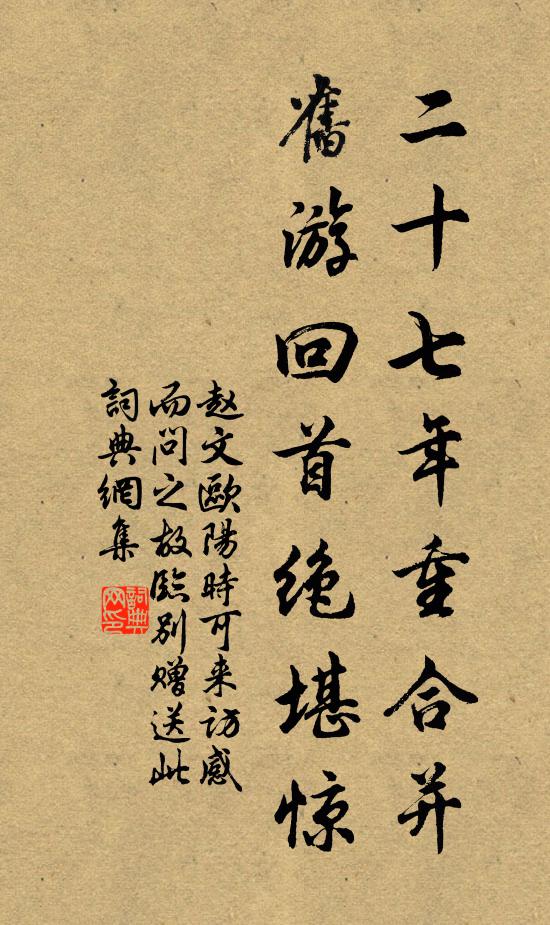 二十七年重合并
舊游回首绝堪惊
赵文歐陽時可来访感
而问之故臨别赠送此
詞典網集
詞典網印